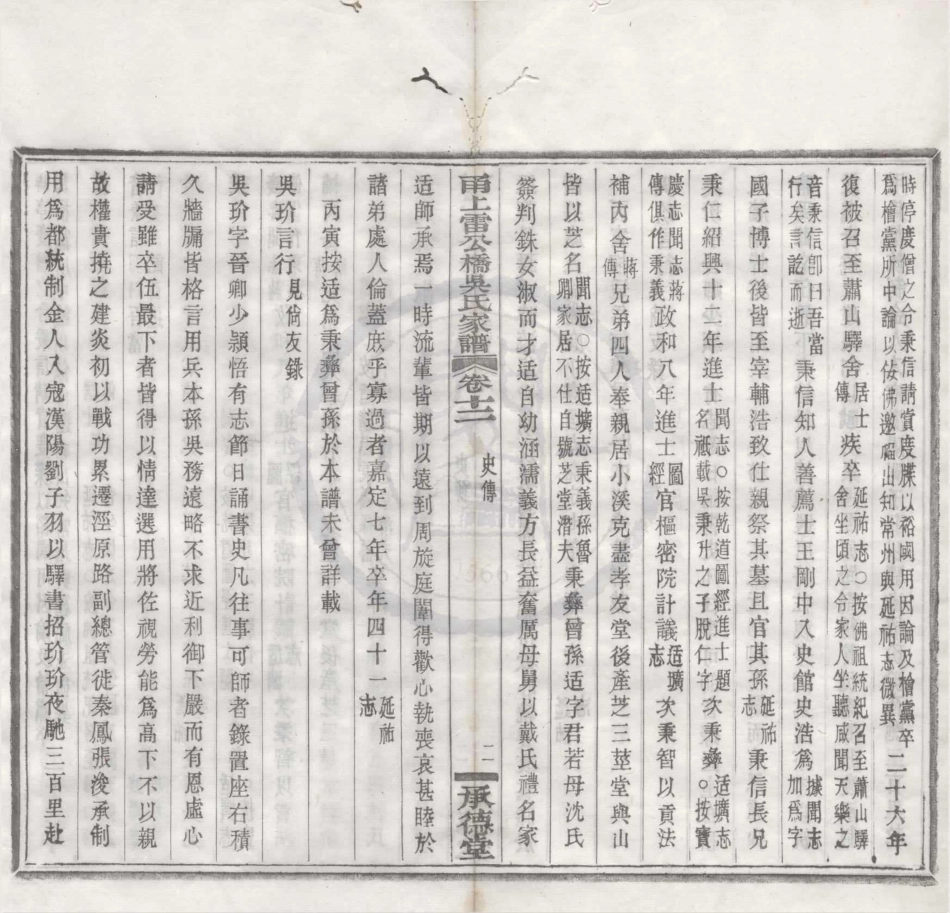 時停慶僧之令秉信請賣度牒以裕國用因論及檜黨卒
爲檜黨所中論以佞佛邀福出知常州與延祐志微異
二十六年
復被召至蕭山驛舍
居士傳
疾卒
延祐志○按佛祖統紀召至蕭山驛
舍坐頃之令家人坐聽咸聞天樂之
音秉信卽曰吾當
行矣言訖而逝
秉信知人善薦士王剛中入史館史浩爲
據聞志
加爲字
國子博士後皆至宰輔浩致仕親祭其墓且官其孫
延祐志
秉信長兄
秉仁紹興十二年進士
聞志○按乾道圖經進士題
名祇載吳秉升之子脫仁字
次秉彝
適壙志
○按寶
慶志聞志蔣
傳俱作秉義
政和八年進士
圖經
官樞密院計議
适壙志
次秉智以貢法
補內舍
蔣傳
兄弟四人奉親居小溪克盡孝友堂後產芝三莖堂與山
皆以芝名
聞志○按适壙志秉義孫魯
卿家居不仕自號芝堂潛夫
秉彝曾孫适字君若母沈氏
簽判銖女淑而才适自幼涵濡義方長益奮厲母舅以戴氏禮名家
甬上雷公橋吳氏家譜 卷十二 史傳 二一 承德堂
适師承焉一時流輩皆期以遠到周旋庭闈得歡心執喪哀甚睦於
諸弟處人倫蓋庶乎寡過者嘉定七年卒年四十一
延祐志
丙寅按适爲秉彝曾孫於本譜未曾詳載
吳玠言行
見尙友錄
吳玠字晉卿少穎悟有志節日誦書史凡往事可師者錄置座右積
久牆牖皆格言用兵本孫吳務遠略不求近利御下嚴而有恩虛心
請受雖卒伍最下者皆得以情達選用將佐視勞能爲高下不以親
故權貴撓之建炎初以戰功累遷涇原路副總管從秦鳳張浚承制
用爲都統制金人入寇漢陽劉子羽以驛書招玠玠夜馳三百里赴